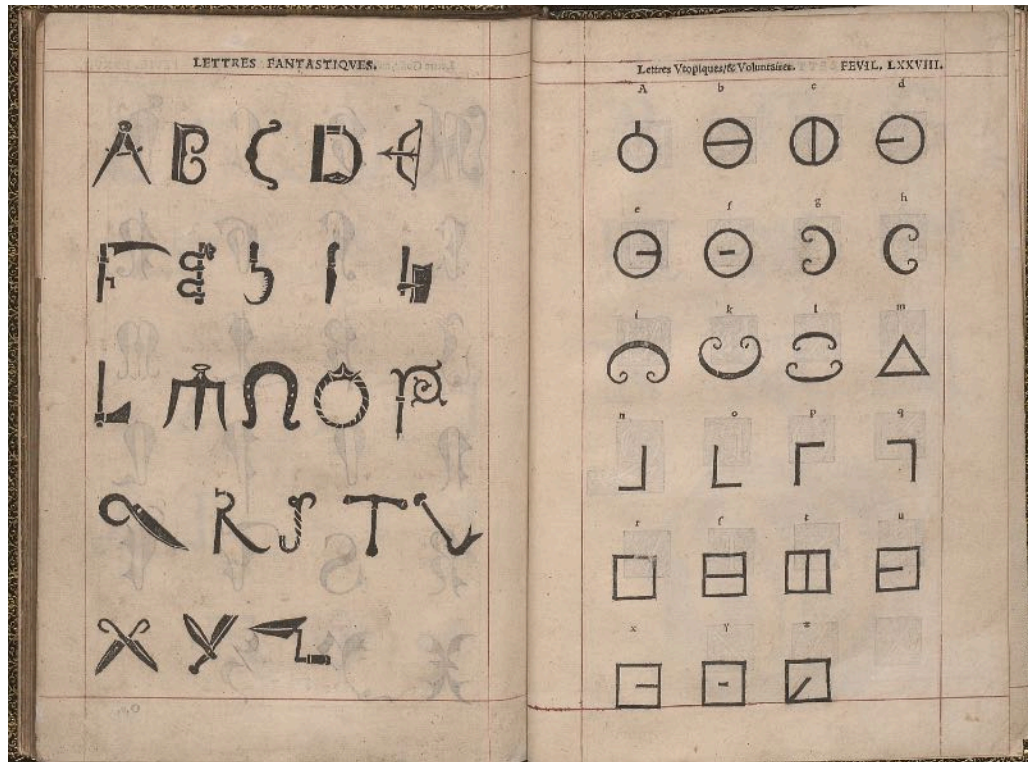 LETTRES FANTASTIQVES.
A B C D E
F G H I K
L M N O P
Q R S T V
X Y Z
Lettres Vtopiques/& Voluntaires. FEVIL. LXXVIII.
A b c d
e f g h
i k l m
n o p q
r ſ t u
x y z